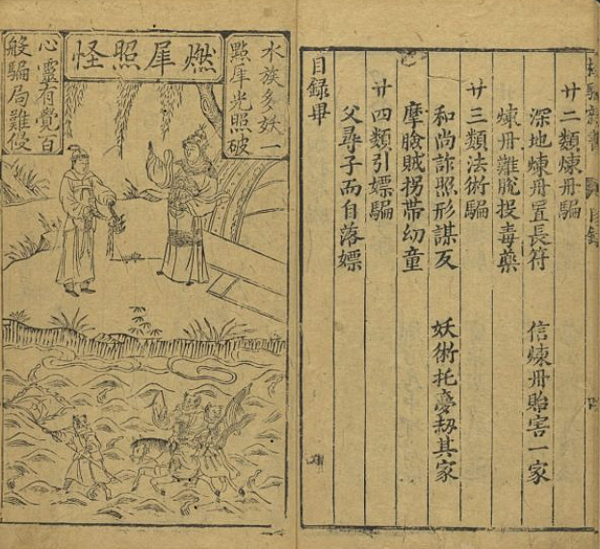 目錄
廿二類煉丹騙
深地煉丹置長符 信煉丹貽害一家
煉丹難脫投毒藥
廿三類法術騙
和尚詐照形謀反 妖術托夢劫其家
摩臉賊拐帶幼童
廿四類引嫖騙
父尋子而自落嫖
目錄畢
燃犀照怪
水族多妖一
點犀光照破
心靈有覺百
般騙局難侵